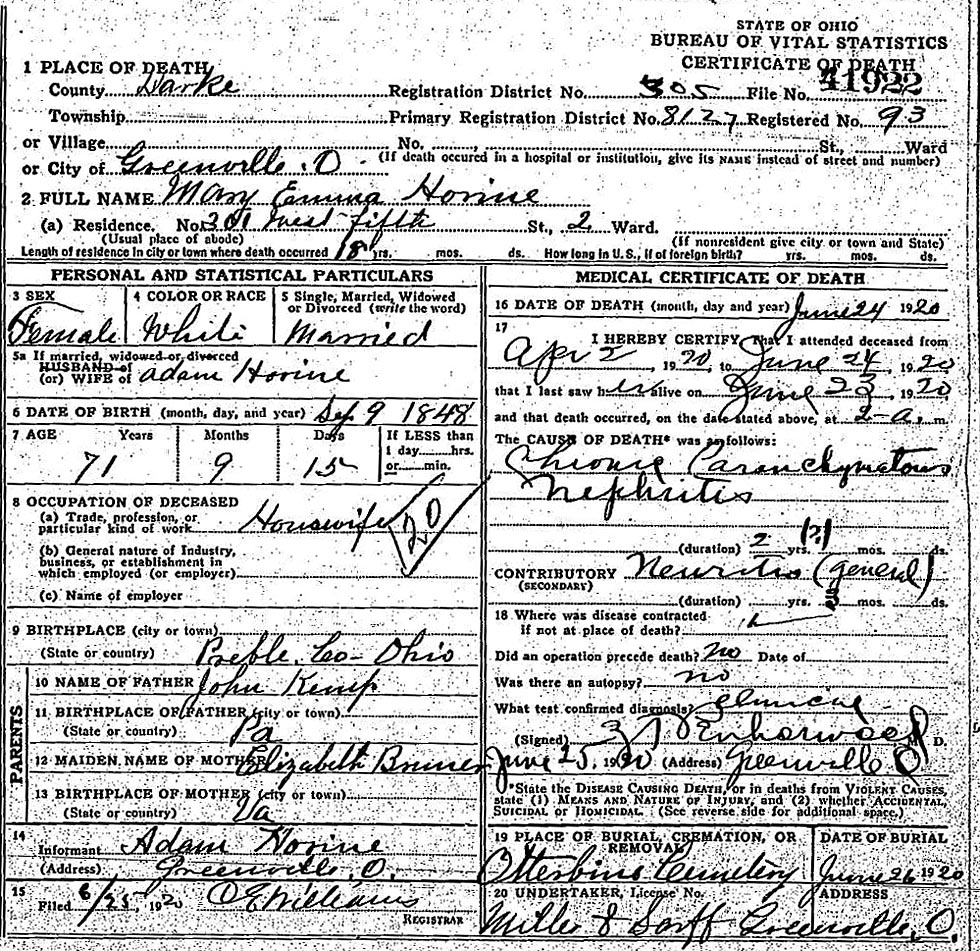 STATE OF OHIO
BUREAU OF VITAL STATISTICS
CERTIFICATE OF DEATH
1 PLACE OF DEATH
County Darke Registration District No. 305 File No. 41922
Township Primary Registration District No. 8127 Registered No. 93
or Village No. St., Ward
(If death occured in a hospital or institution, give its NAME instead of street and number)
or City of Greenville. O
2 FULL NAME Mary Emma Horine
(a) Residence. No. 301 West fifth St., 2 Ward.
(Usual place of abode) (If nonresident give city or town and State)
Length of residence in city or town where death occurred 18 yrs. mos. ds. How long in U.S., if of foreign birth? yrs. mos. ds.
PERSONAL AND STATISTICAL PARTICULARS
3 SEX 4 COLOR OR RACE 5 Single, Married, Widowed
or Divorced (write the word)
Female White Married
5a If married, widowed or divorced
HUSBAND of
(or) WIFE of Adam Horine
6 DATE OF BIRTH (month, day, and year) Sep 9 1848
7 AGE Years Months Days If LESS than
1 day hrs.
or min.
71 9 15
8 OCCUPATION OF DECEASED
(a) Trade, profession, or
particular kind of work Housewife
20
(b) General nature of Industry,
business, or establishment in
which employed (or employer)
(c) Name of employer
9 BIRTHPLACE (city or town)
(State or country) Preble. Co - Ohio
PARENTS
10 NAME OF FATHER John Kemp
11 BIRTHPLACE OF FATHER (city or town)
(State or country) Pa
12 MAIDEN NAME OF MOTHER Elizabeth
13 BIRTHPLACE OF MOTHER (city or town)
(State or country) Va
14
Informant Adam Horine
(Address) Greenville, O.
15
Filed 6/25, 1920 O E Williams
REGISTRAR
MEDICAL CERTIFICATE OF DEATH
16 DATE OF DEATH (month, day and year) June 24 1920
17
I HEREBY CERTIFY, That I attended deceased from
Apr 2, 1920, to June 24, 1920
that I last saw her alive on June 23, 1920
and that death occurred, on the date stated above, at 2 a. m.
The CAUSE OF DEATH* was as follows:
Chronic Paranchymatous
Nephritis
(duration) 2 yrs. mos. ds.
CONTRIBUTORY Neuritis (general)
(SECONDARY)
(duration) yrs. mos. ds.
18 Where was disease contracted
If not at place of death?
Did an operation precede death? no Date of
Was there an autopsy? no
What test confirmed diagnosis? Clinical
(Signed) D.
June 25, 1920 (Address) Greenville O
*State the DISEASE CAUSING DEATH, or in deaths from VIOLENT CAUSES,
state (1) MEANS AND NATURE OF INJURY, and (2) whether ACCIDENTAL,
SUICIDAL or HOMICIDAL. (See reverse side for additional space.)
19 PLACE OF BURIAL, CREMATION, OR
REMOVAL
DATE OF BURIAL
Otterbine Cemetery June 26 1920
20 UNDERTAKER, License No. ADDRESS
Miller & Sarff Greenville, O.